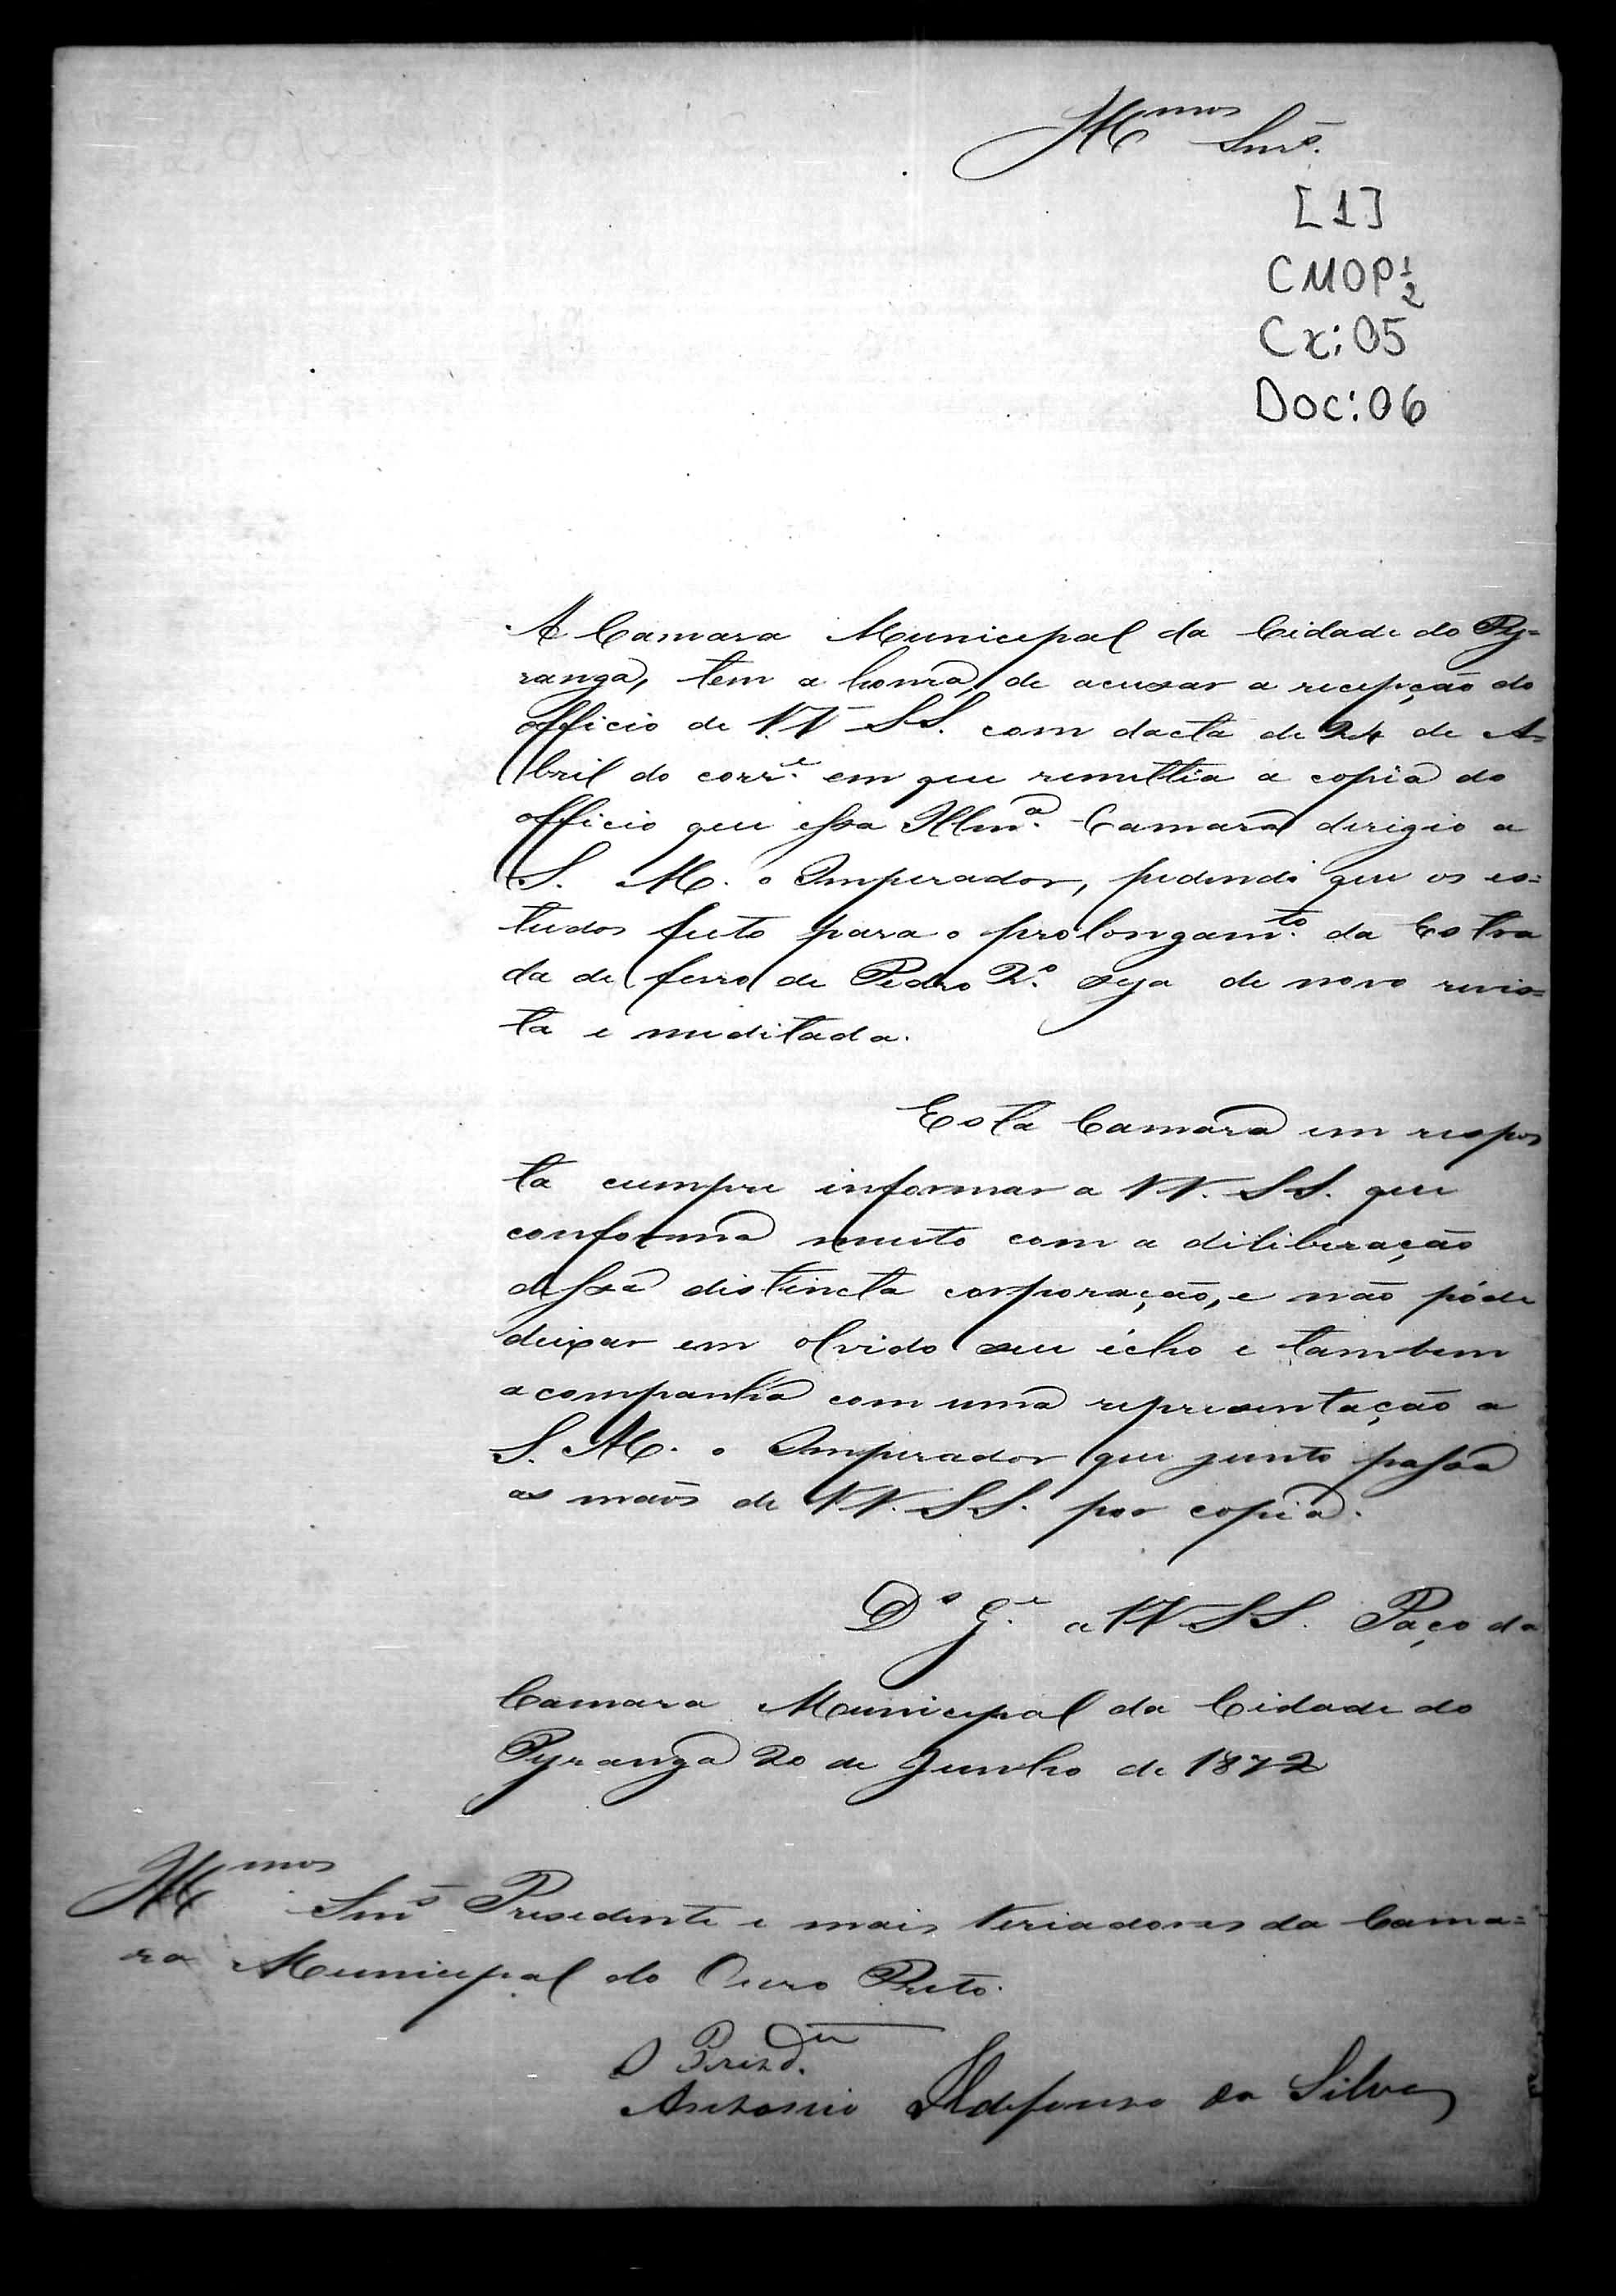 Illmos Snrs.
[1]
CMOP 1/2
Cx: 05
Doc: 06
A Camara Municipal da Cidade do Py=
ranga, tem a honra, de acusar a recepção do
officio de VV SS. com dacta de 24 de A=
bril do corre. em que remettia a copia do
officio que essa Illma. Camara dirigio a
S. M. o Imperador, pedindo que os es=
tudos feito para o prolongamto. da Estra
da de ferro de Pedro 2º. seja de novo revis=
ta e meditada.
Esta Camara em respos
ta cumpre informar a VV. SS. que
conforma muito com a diliberação
dessa distincta corporação, e não póde
deixar em olvido seu écho e tambem
acompanha com uma representação a
S. M. o Imperador que junto passa
as mãos de VV. SS. por copia.
Ds Ge. a VV SS. Paço da
Camara Municipal da Cidade do
Pyranga 20 de Junho de 1872
Illmos Snrs Presidente e mais Veriadores da Cama=
ra Municipal do Ouro Preto.
O Prezde.
Antonio Ildefonso da Silva